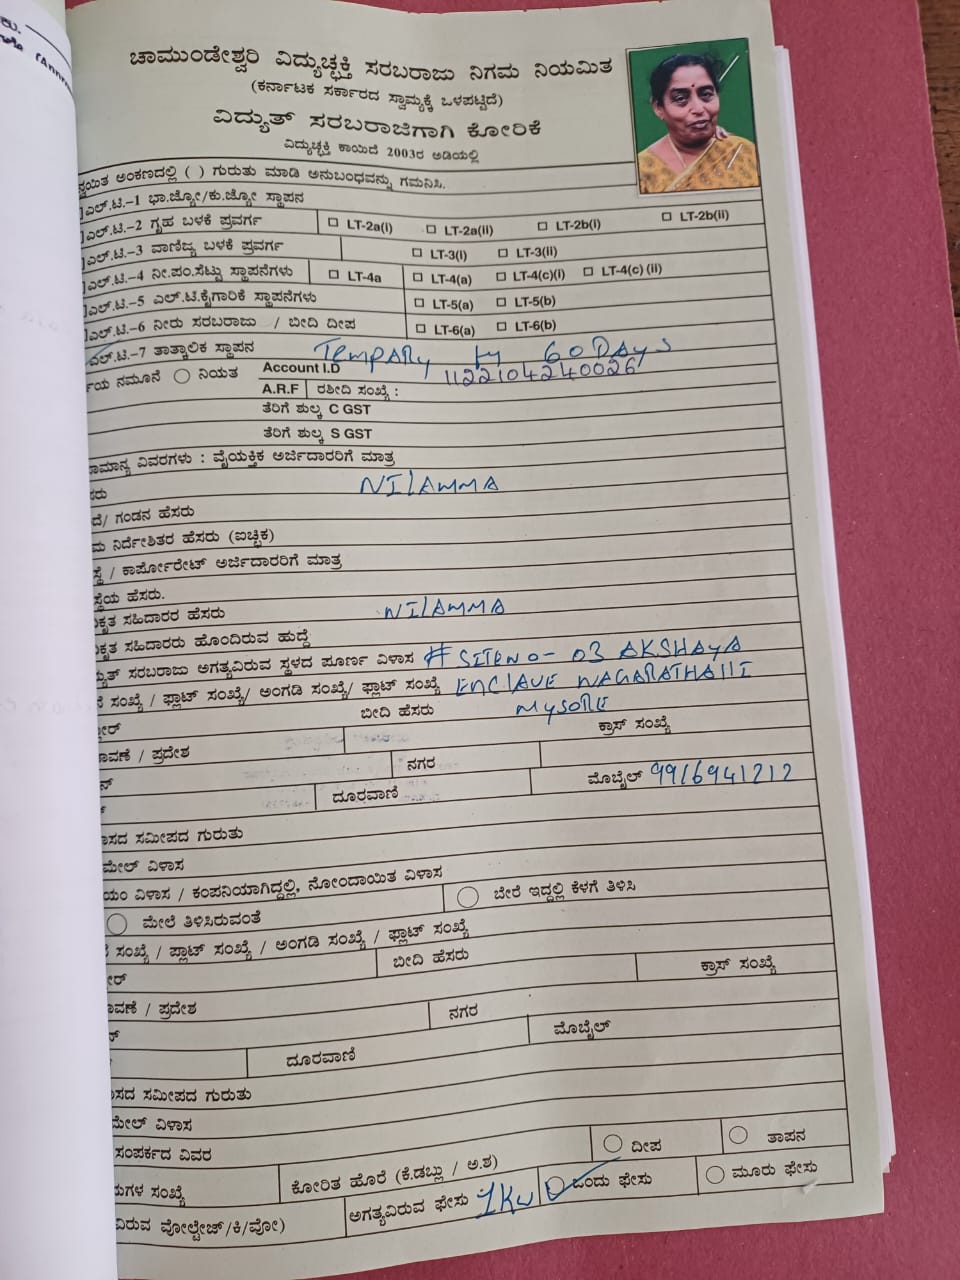 ಚಾಮುಂಡೇಶ್ವರಿ ವಿದ್ಯುಚ್ಛಕ್ತಿ ಸರಬರಾಜು ನಿಗಮ ನಿಯಮಿತ
(ಕರ್ನಾಟಕ ಸರ್ಕಾರದ ಸ್ವಾಮ್ಯಕ್ಕೆ ಒಳಪಟ್ಟಿದೆ)
ವಿದ್ಯುತ್ ಸರಬರಾಜಿಗಾಗಿ ಕೋರಿಕೆ
ವಿದ್ಯುಚ್ಛಕ್ತಿ ಕಾಯಿದೆ 2003ರ ಅಡಿಯಲ್ಲಿ
ಅಂಕಣದಲ್ಲಿ ( ) ಗುರುತು ಮಾಡಿ ಅನುಬಂಧವನ್ನು ಗಮನಿಸಿ.
ಎಲ್.ಟಿ.–1 ಭಾ.ಜ್ಯೋ/ಕು.ಜ್ಯೋ ಸ್ಥಾಪನ
ಎಲ್.ಟಿ.–2 ಗೃಹ ಬಳಕೆ ಪ್ರವರ್ಗ LT-2a(i) LT-2a(ii) LT-2b(i) LT-2b(ii)
ಎಲ್.ಟಿ.–3 ವಾಣಿಜ್ಯ ಬಳಕೆ ಪ್ರವರ್ಗ LT-3(i) LT-3(ii)
ಎಲ್.ಟಿ.–4 ನೀ.ಪಂ.ಸೆಟ್ಟು ಸ್ಥಾಪನೆಗಳು LT-4a LT-4(a) LT-4(c)(i) LT-4(c) (ii)
ಎಲ್.ಟಿ.–5 ಎಲ್.ಟಿ.ಕೈಗಾರಿಕೆ ಸ್ಥಾಪನೆಗಳು LT-5(a) LT-5(b)
ಎಲ್.ಟಿ.–6 ನೀರು ಸರಬರಾಜು / ಬೀದಿ ದೀಪ LT-6(a) LT-6(b)
ಎಲ್.ಟಿ.–7 ತಾತ್ಕಾಲಿಕ ಸ್ಥಾಪನ TEMPARY 60 DAYS
ನಮೂನೆ ನಿಯತ Account I.D 1122104240026
A.R.F ರಶೀದಿ ಸಂಖ್ಯೆ :
ತೆರಿಗೆ ಶುಲ್ಕ C GST
ತೆರಿಗೆ ಶುಲ್ಕ S GST
ವಿವರಗಳು : ವೈಯಕ್ತಿಕ ಅರ್ಜಿದಾರರಿಗೆ ಮಾತ್ರ
NILAMMA
ಗಂಡನ ಹೆಸರು
ನಿರ್ದೇಶಿತರ ಹೆಸರು (ಐಚ್ಛಿಕ)
/ ಕಾರ್ಪೋರೇಟ್ ಅರ್ಜಿದಾರರಿಗೆ ಮಾತ್ರ
ಹೆಸರು.
ಸಹಿದಾರರ ಹೆಸರು NILAMMA
ಸಹಿದಾರರು ಹೊಂದಿರುವ ಹುದ್ದೆ
ಸರಬರಾಜು ಅಗತ್ಯವಿರುವ ಸ್ಥಳದ ಪೂರ್ಣ ವಿಳಾಸ # SITENO- 03 AKSHAYA
ಸಂಖ್ಯೆ / ಫ್ಲಾಟ್ ಸಂಖ್ಯೆ/ ಅಂಗಡಿ ಸಂಖ್ಯೆ/ ಫ್ಲಾಟ್ ಸಂಖ್ಯೆ ENCLAVE NAGARATHALLI
ಬೀದಿ ಹೆಸರು MYSORE
ಕ್ರಾಸ್ ಸಂಖ್ಯೆ
/ ಪ್ರದೇಶ
ನಗರ
ದೂರವಾಣಿ ಮೊಬೈಲ್ 9916941212
ಸಮೀಪದ ಗುರುತು
ವಿಳಾಸ
ವಿಳಾಸ / ಕಂಪನಿಯಾಗಿದ್ದಲ್ಲಿ, ನೋಂದಾಯಿತ ವಿಳಾಸ
ಮೇಲೆ ತಿಳಿಸಿರುವಂತೆ ಬೇರೆ ಇದ್ದಲ್ಲಿ ಕೆಳಗೆ ತಿಳಿಸಿ
ಸಂಖ್ಯೆ / ಪ್ಲಾಟ್ ಸಂಖ್ಯೆ / ಅಂಗಡಿ ಸಂಖ್ಯೆ / ಫ್ಲಾಟ್ ಸಂಖ್ಯೆ
ಬೀದಿ ಹೆಸರು ಕ್ರಾಸ್ ಸಂಖ್ಯೆ
/ ಪ್ರದೇಶ
ನಗರ
ದೂರವಾಣಿ ಮೊಬೈಲ್
ಸಮೀಪದ ಗುರುತು
ವಿಳಾಸ
ಸಂಪರ್ಕದ ವಿವರ
ಸಂಖ್ಯೆ ಕೋರಿತ ಹೊರೆ (ಕೆ.ಡಬ್ಲು / ಅ.ಶ) ದೀಪ ತಾಪನ
ವೋಲ್ಟೇಜ್/ಕಿ/ವೋ) ಅಗತ್ಯವಿರುವ ಫೇಸು 1KW ಒಂದು ಫೇಸು ಮೂರು ಫೇಸು